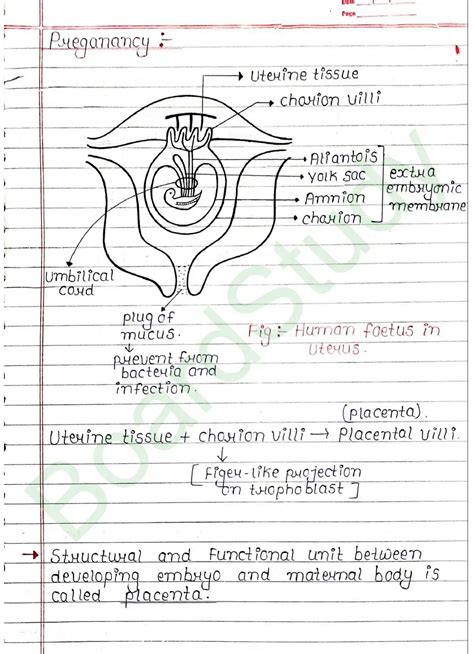 Date
Page
Preganancy :-
Uterine tissue
chorion villi
Allantois
yolk sac
Amnion
chorion
extra
embryonic
membrane
Umbilical
cord
plug of
mucus.
prevent from
bacteria and
infection.
Fig :- Human foetus in
Uterus.
(placenta).
Uterine tissue + chorion villi → Placental villi.
[Figer-like projection
on trophoblast]
→ Structural and Functional unit between
developing embryo and maternal body is
called placenta.
BoardStudy